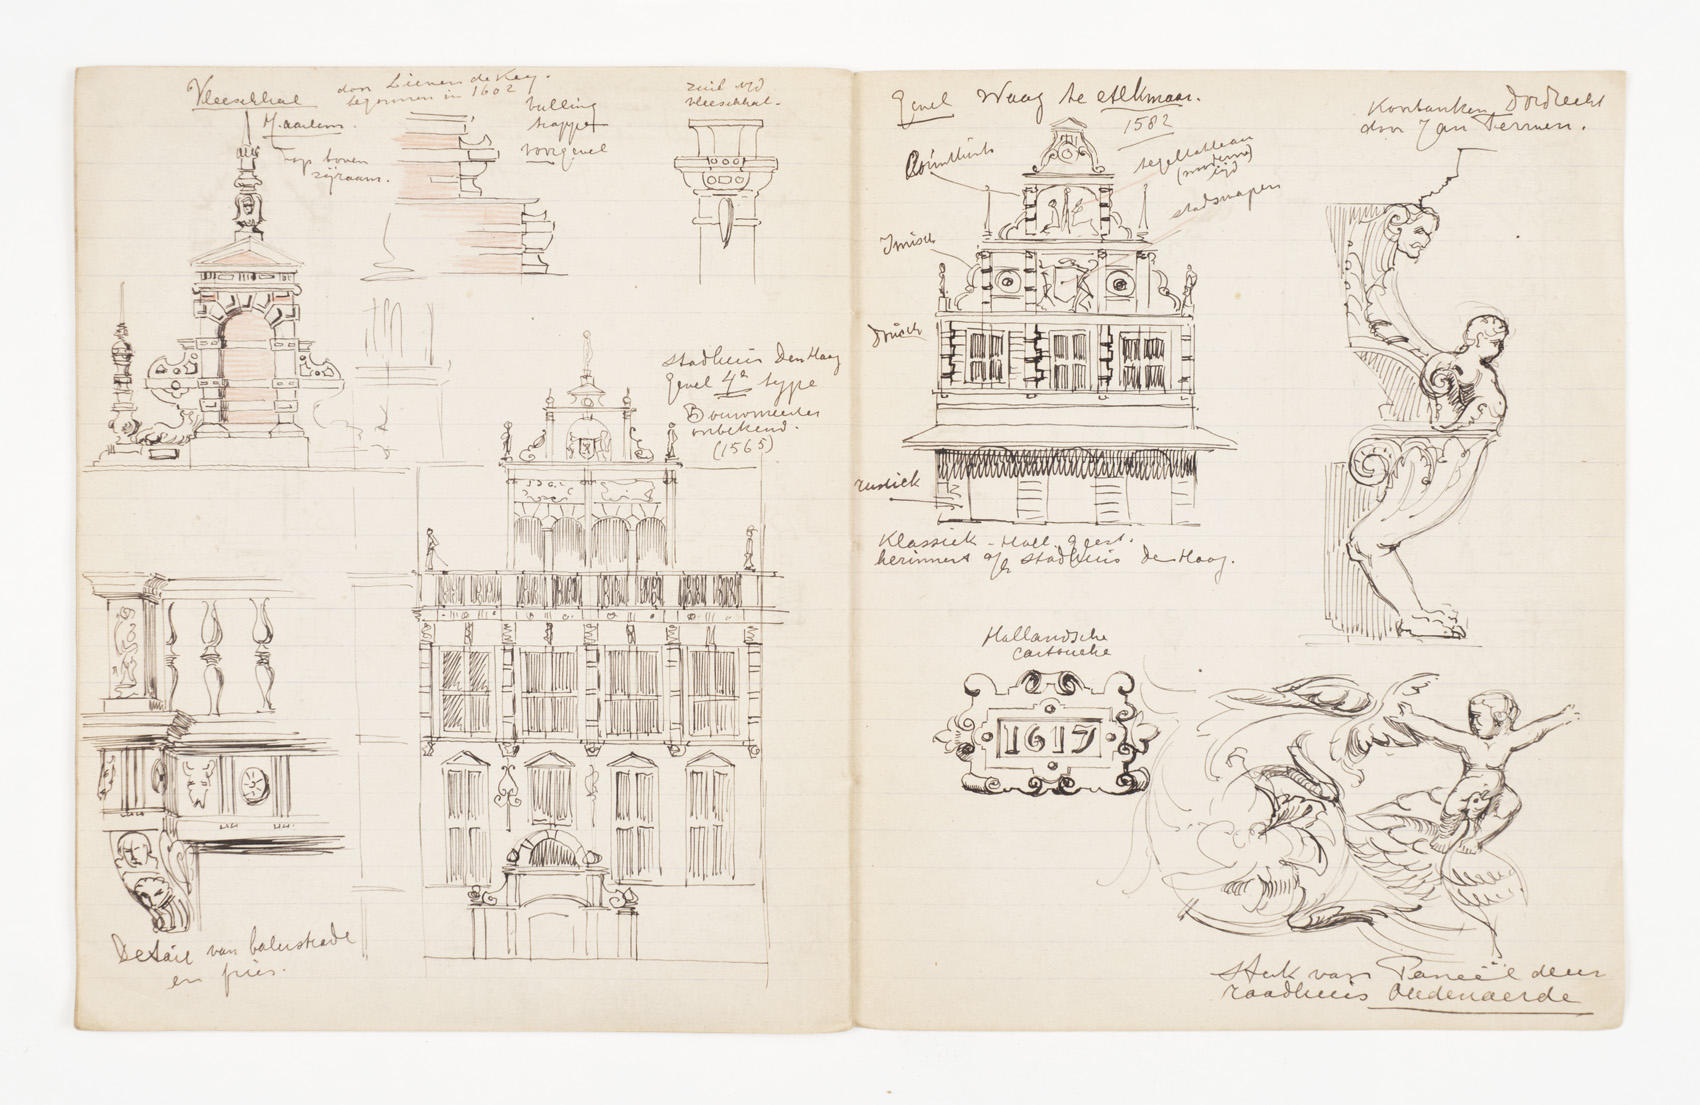 Vleeschhal
Haarlem.
top boven
zijraam.
door Lieven de Key.
begonnen in 1602
vulling
trappen
voorgevel
zuil v/d
vleeschhal.
Stadhuis Den Haag
gevel 4e type
Bouwmeester
onbekend.
(1565)
Detail van balustrade
en fries.
Gevel Waag te Alkmaar.
1582
Corinthisch
Ionisch
Dorisch
rustiek
tegeltableau
(moderne
tijd
stadswapen
Klassiek - Holl. geest.
herinnert a/h stadhuis den Haag.
Hollandsche
Cartouche
1617
Koorbanken Dordrecht
door Jan Terwen.
Stuk van Paneel deur
raadhuis Oudenaerde